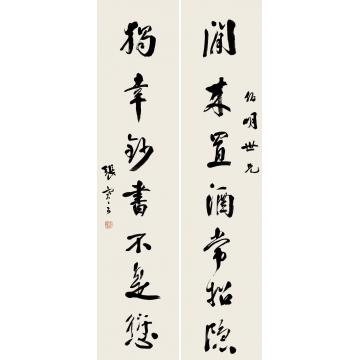 伯明世兄
閒來置酒常招隱
獨幸鈔書不是愆
張